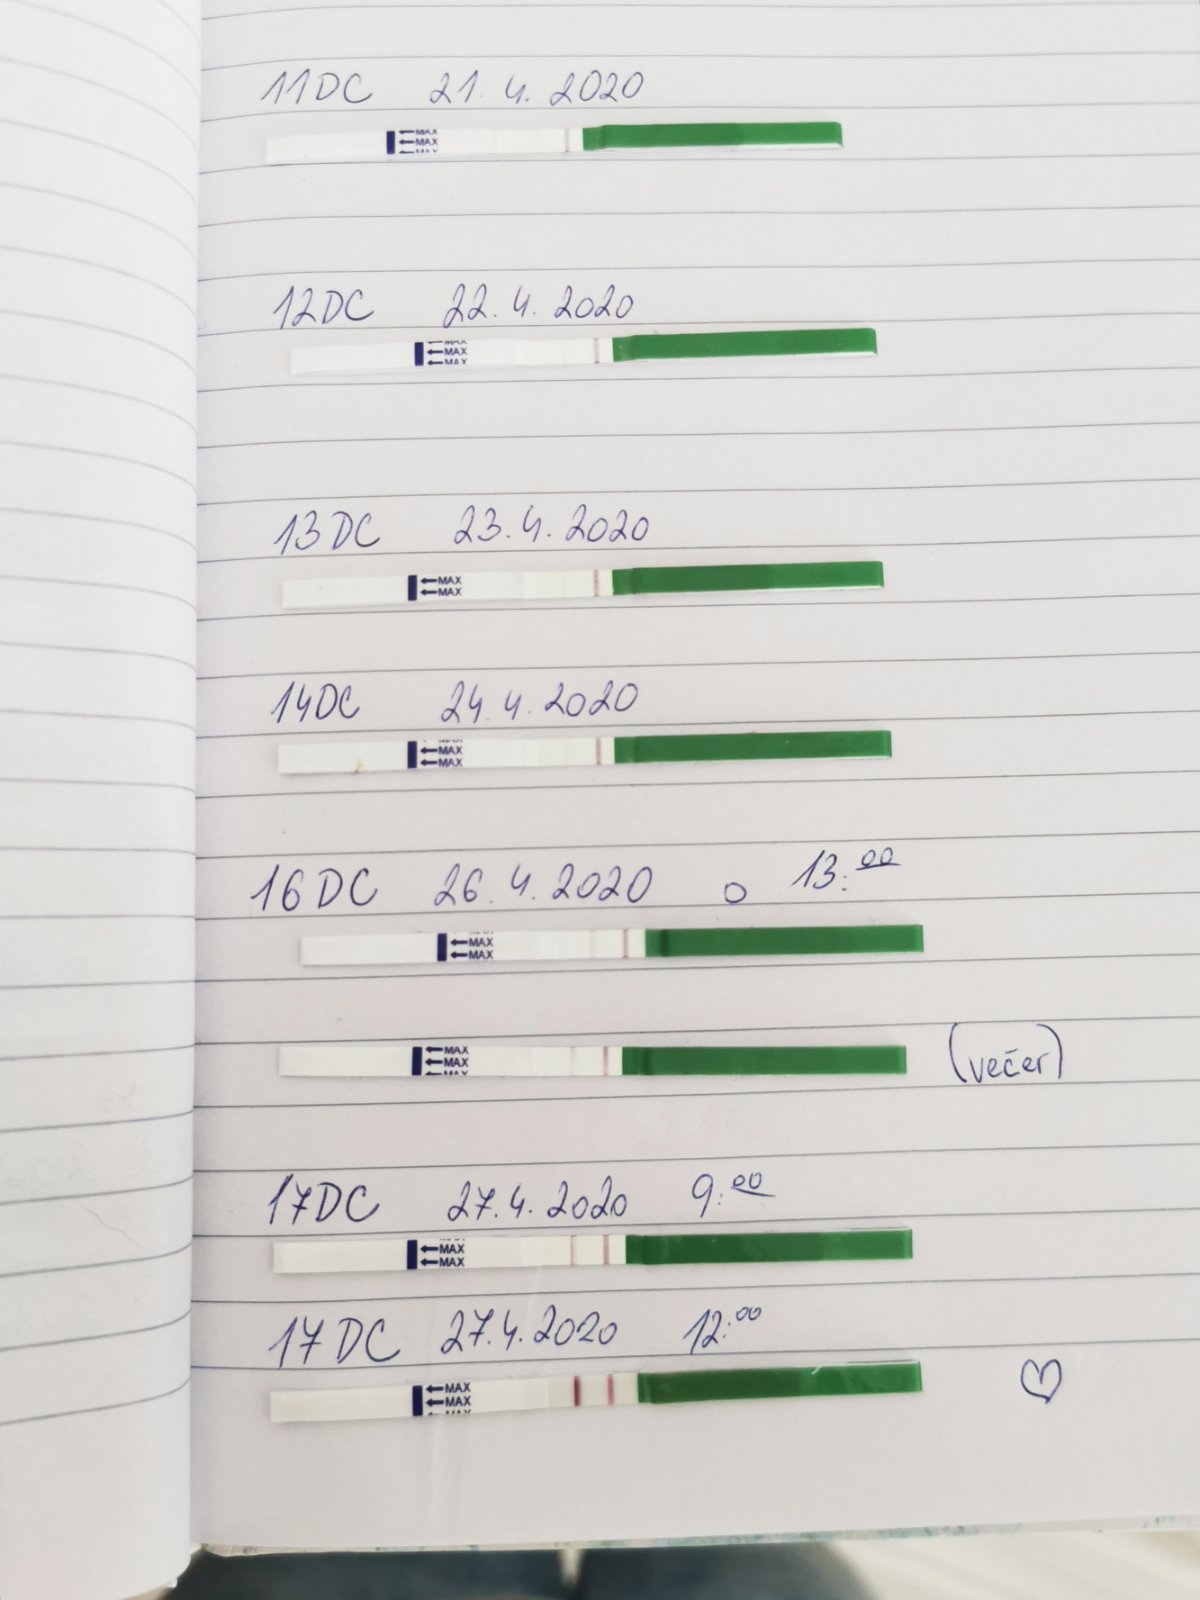 11DC 21. 4. 2020
MAX
MAX
MAX
12DC 22. 4. 2020
MAX
MAX
MAX
13DC 23. 4. 2020
MAX
MAX
14DC 24. 4. 2020
MAX
MAX
MAX
16DC 26. 4. 2020 o 13:00
MAX
MAX
MAX
MAX
MAX
MAX
(večer)
17DC 27. 4. 2020 9:00
MAX
MAX
MAX
17DC 27. 4. 2020 12:00
MAX
MAX
MAX